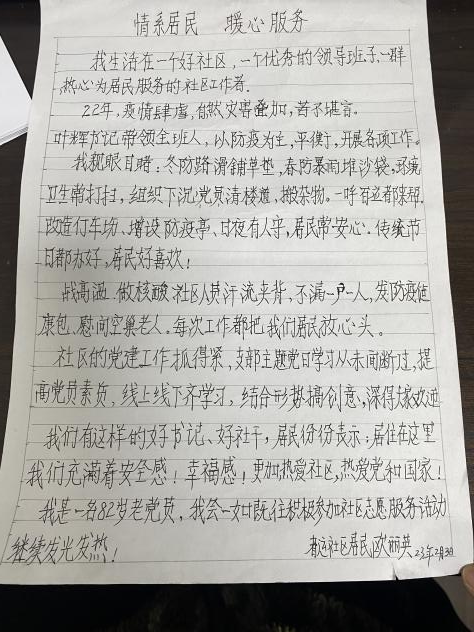 情系居民 暖心服务
我生活在一个好社区,一个优秀的领导班子,一群
热心为居民服务的社区工作者.
22年,疫情肆虐,自然灾害叠加,苦不堪言.
叶辉书记带领全班人,以防疫为主,平衡于,开展各项工作。
我亲眼目睹:冬防路滑铺草垫,春防暴雨堆沙袋,环境
卫生常打扫,组织下沉党员清楼道、搬杂物。一呼百应都来帮.
改造停车场、增设防疫亭、日夜有人守,居民常安心.传统节
日都办好,居民好喜欢!
战高温 做核酸,社区人员汗流夹背,不漏一户一人,发防疫健
康包、慰问空巢老人。每次工作都把我们居民放心头。
社区的党建工作抓得紧,支部主题党日学习从未间断过,提
高党员素质,线上线下齐学习,结合形势搞创意,深得大家欢迎
我们有这样的好书记、好社干,居民份份表示:居住在这里
我们充满着安全感!幸福感!更加热爱社区,热爱党和国家!
我是一名82岁老党员,我会一如既往积极参加社区志愿服务活动
继续发光发热!
社区居民 欧丽英 23年2月3日